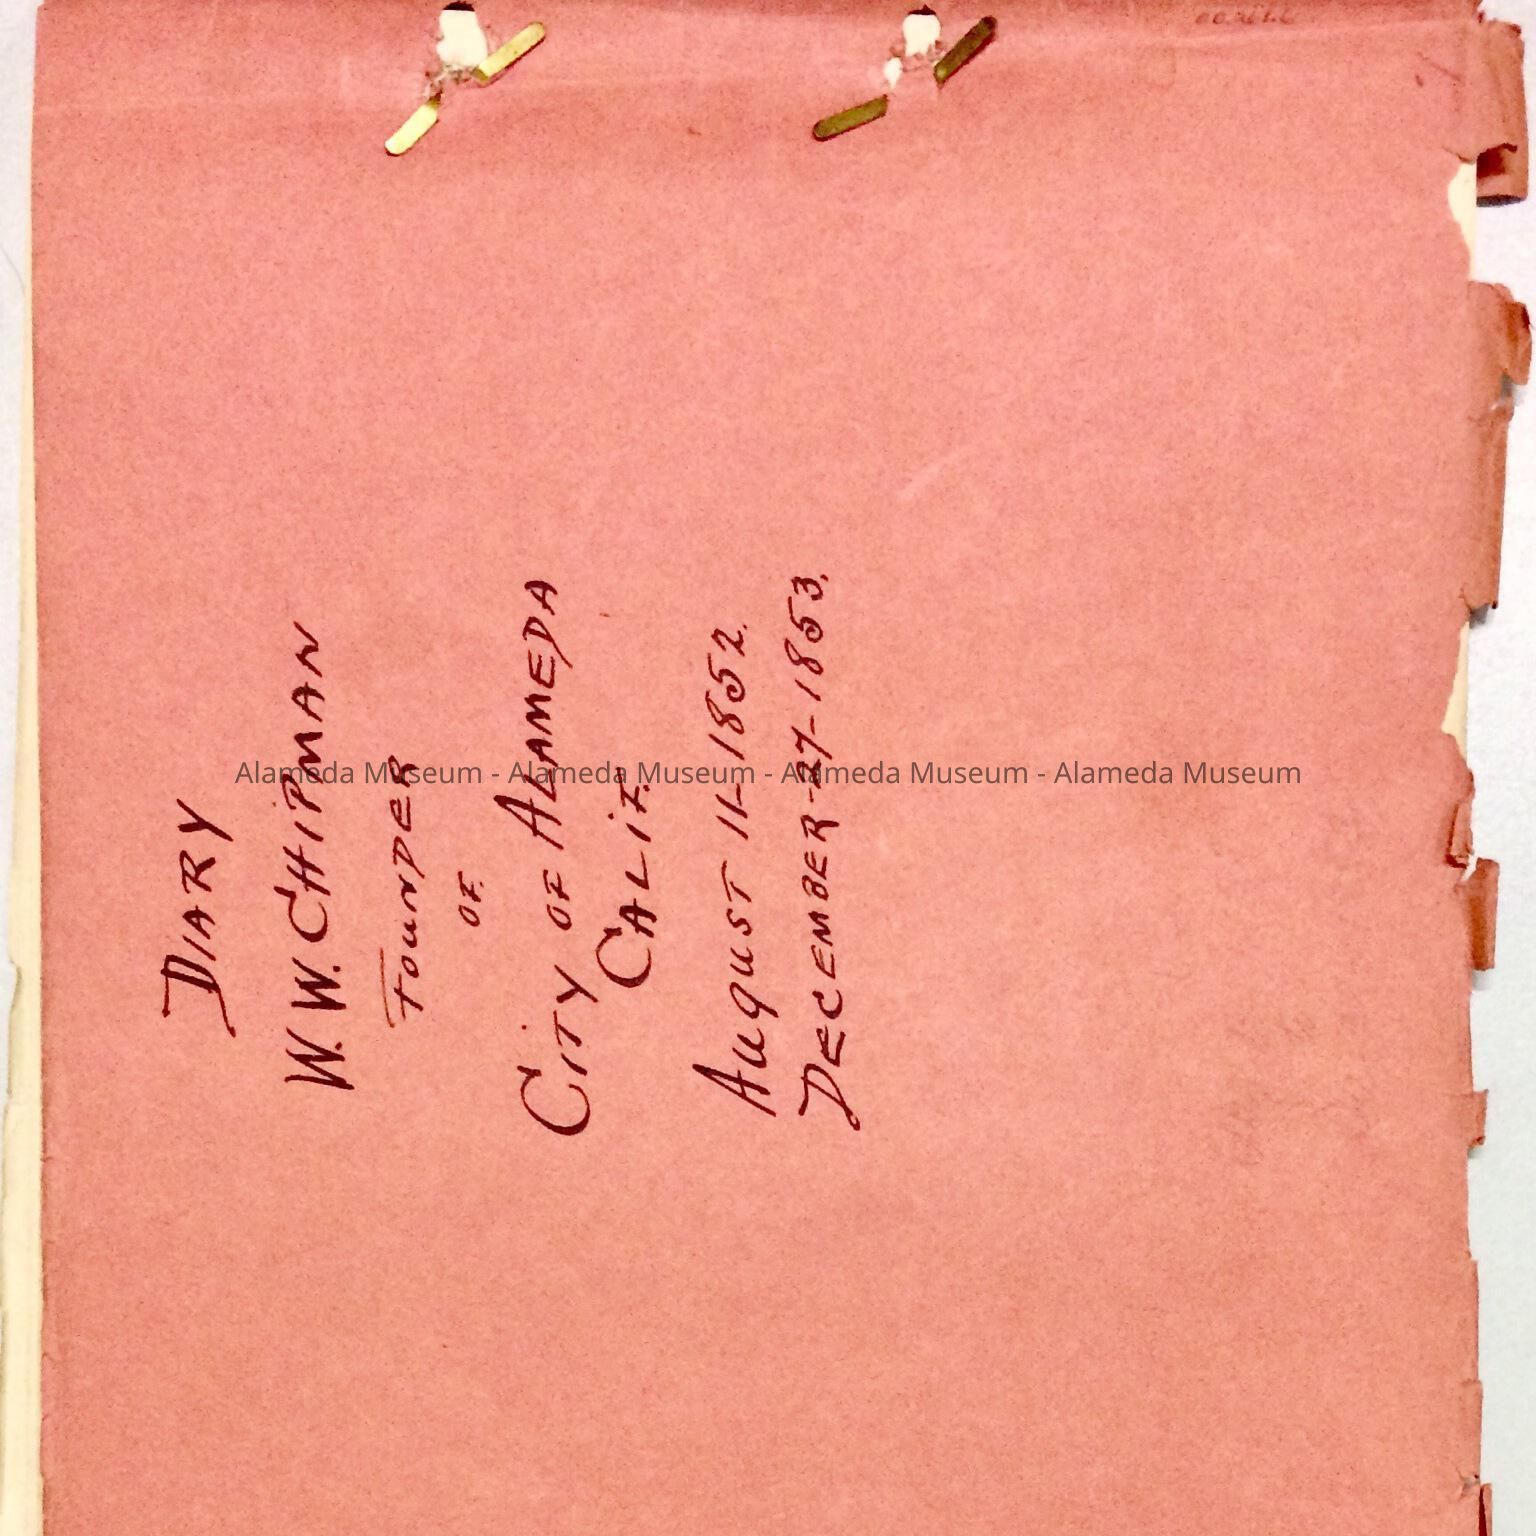 DIARY
W. W. CHIPMAN
FOUNDER
OF
CITY OF ALAMEDA
CALIF.
AUGUST 11-1852.
DECEMBER-27-1853.
Alameda Museum - Alameda Museum - Alameda Museum - Alameda Museum